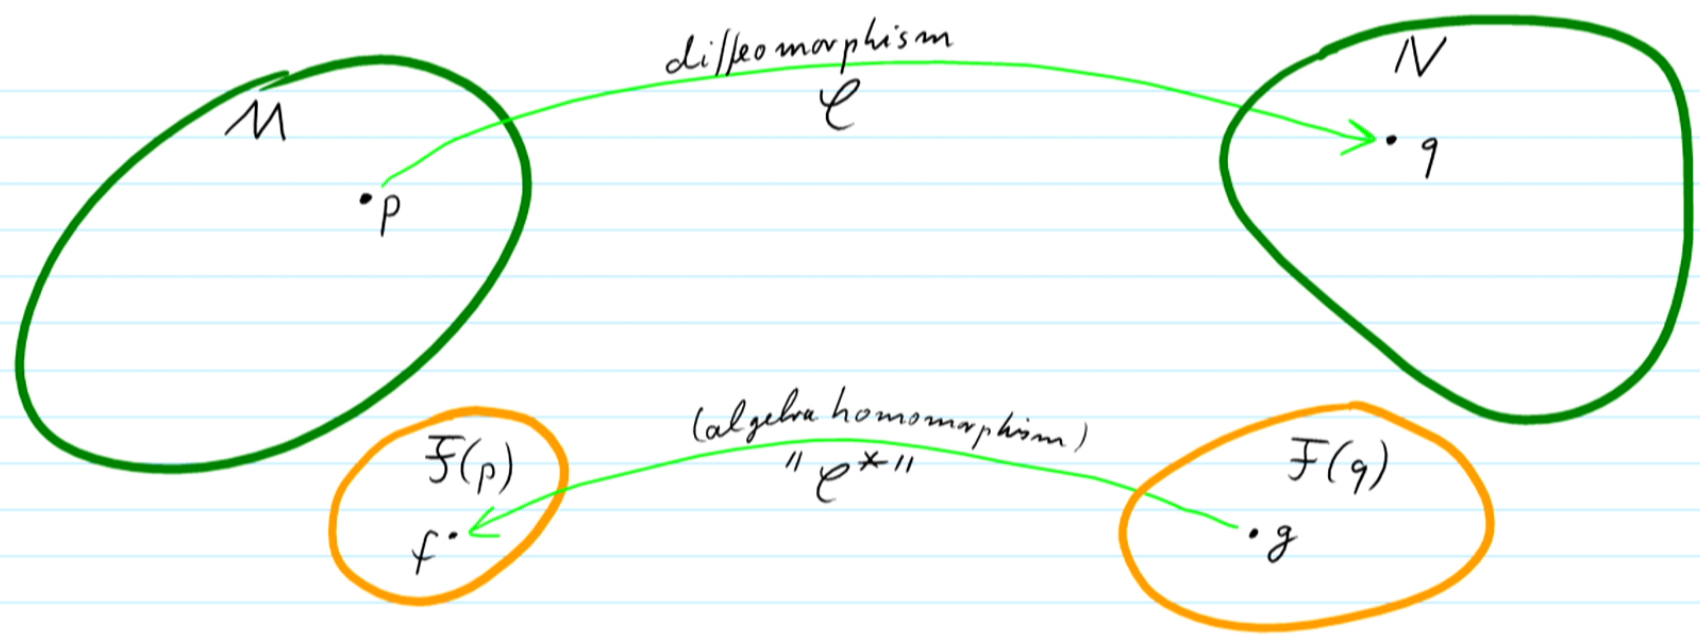 diffeomorphism
φ
M
N
p
q
(algebra homomorphism)
"φ*"
F(p)
F(q)
f
g